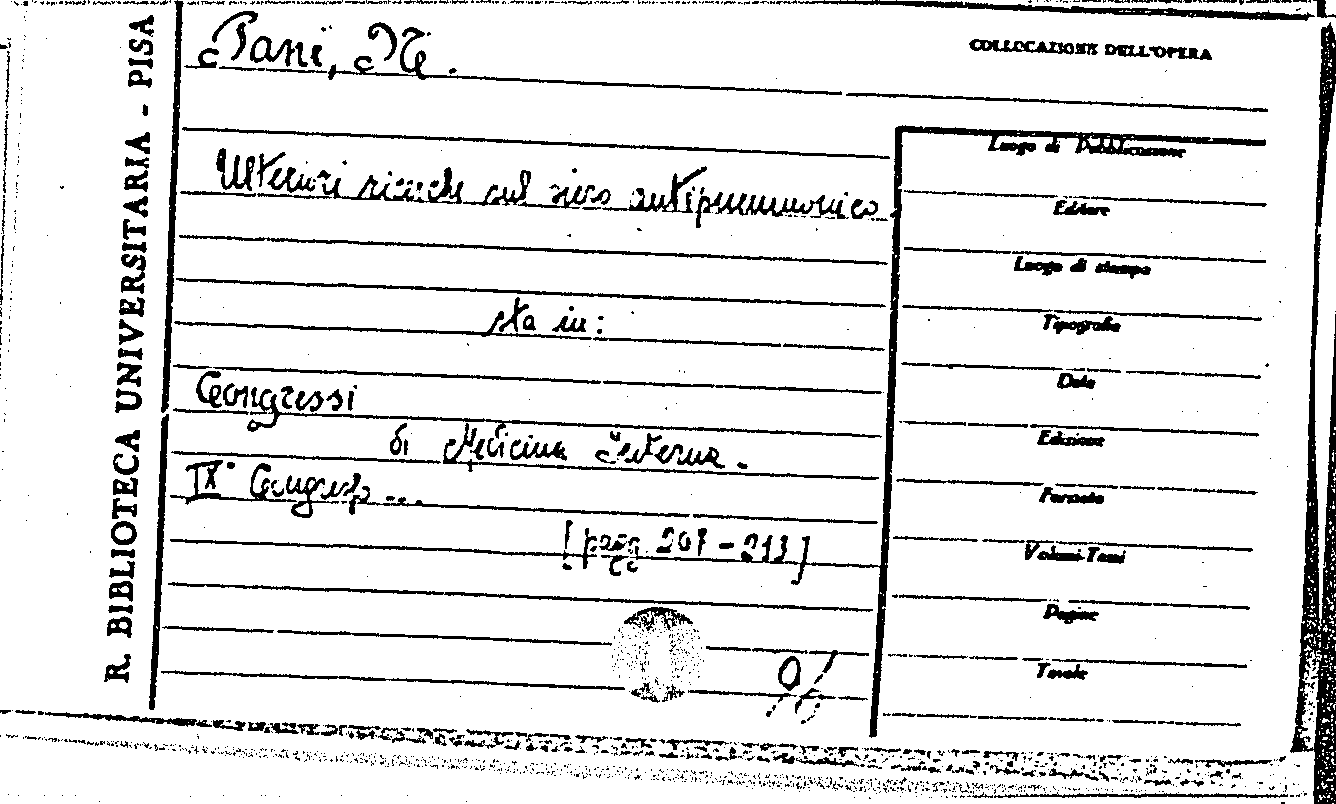 R. BIBLIOTECA UNIVERSITARIA - PISA
Pane, N.
COLLOCAZIONE DELL'OPERA
Ulteriori ricerche sul siero antipneumonico.
sta in:
Congressi
di Medicina Interna.
IX° Congresso ...
[pagg. 207-213]
Luogo di Pubblicazione
Editore
Luogo di stampa
Tipografia
Data
Edizione
Formato
Volumi-Tomi
Pagine
Tavole